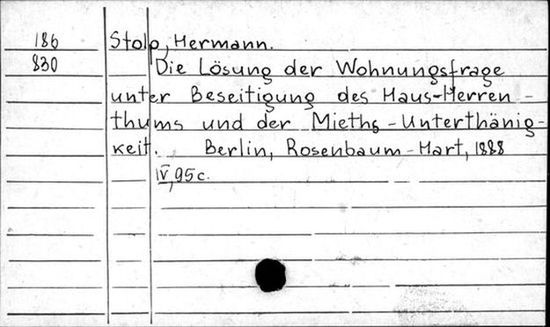 186 Stolp, Hermann.
830 Die Lösung der Wohnungsfrage
unter Beseitigung des Haus-Herren-
thums und der Mieths-Unterthänig-
keit. Berlin, Rosenbaum-Hart, 1888
IV, 95 c.